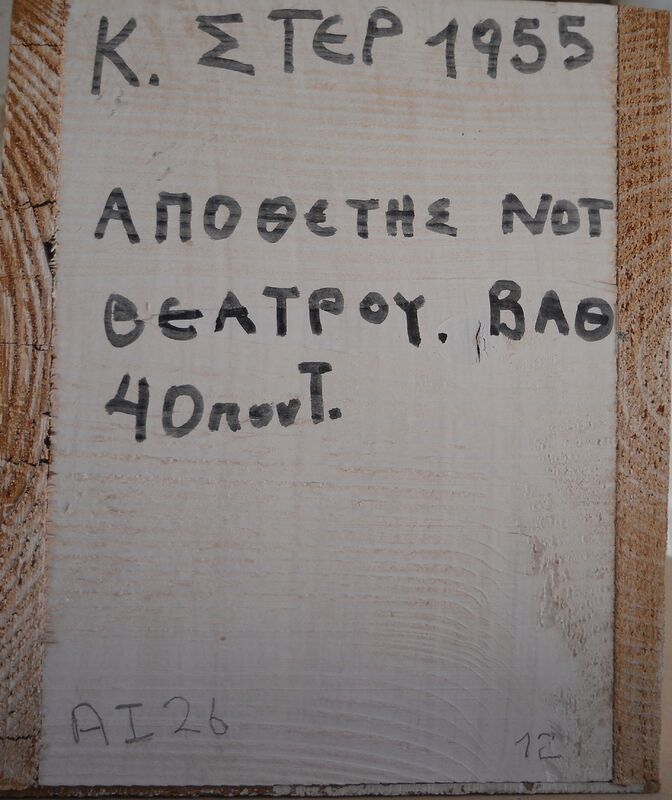 Κ. ΣΤΕΡ 1955
ΑΠΟΘΕΤΗΣ ΝΟΤ
ΘΕΑΤΡΟΥ. ΒΑΘ
40ποντ.
AI26 12